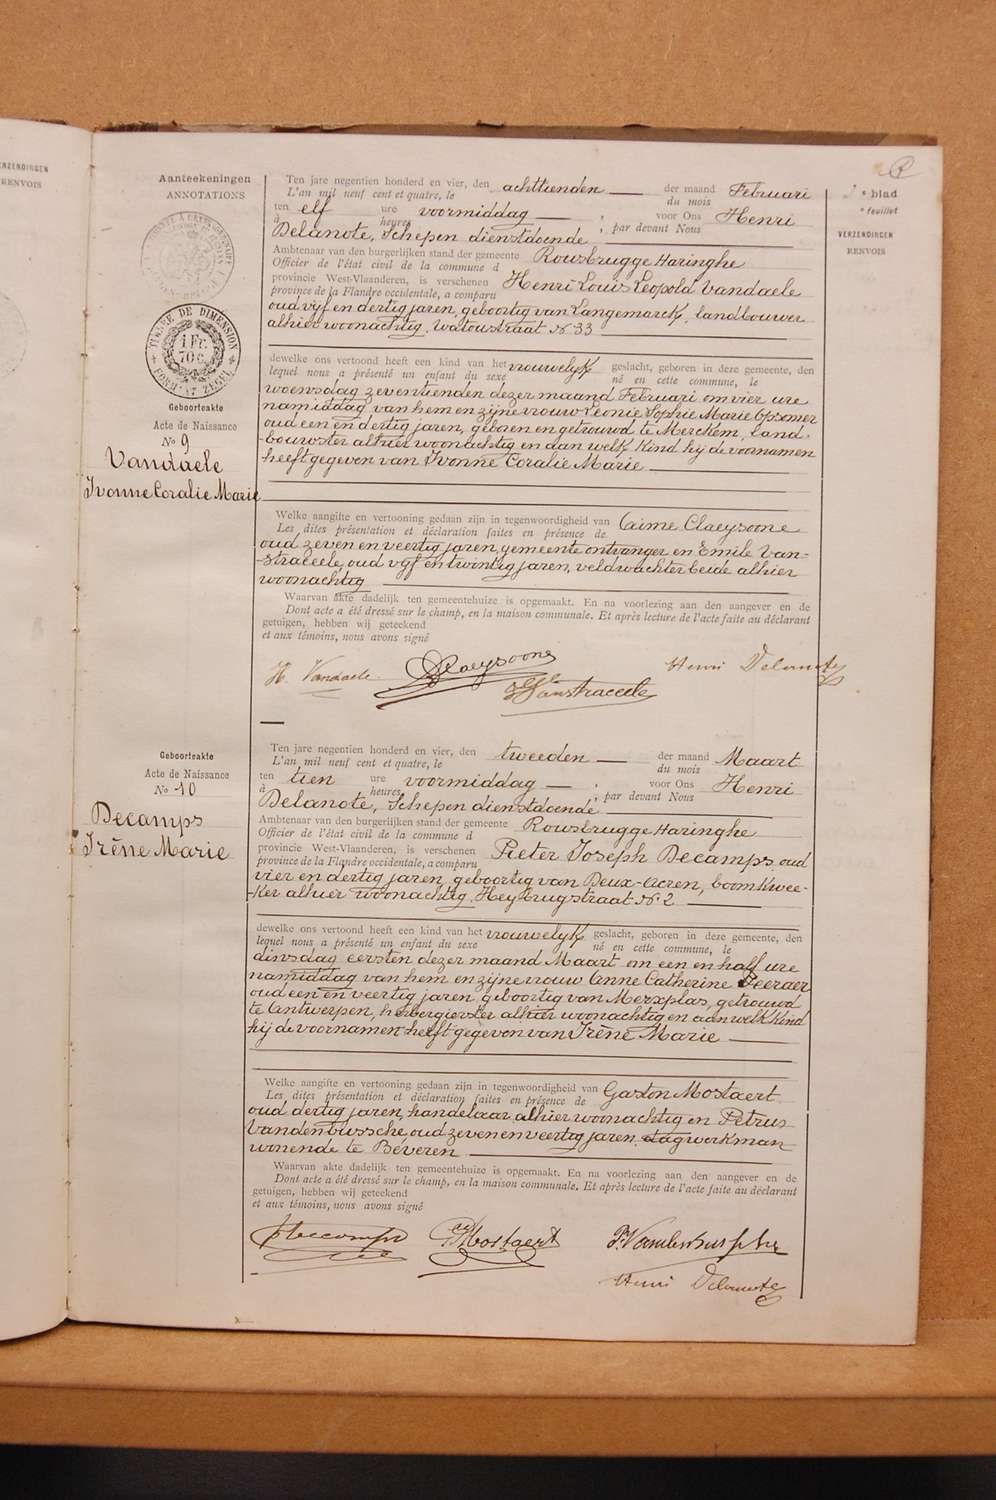 VERZENDINGEN
RENVOIS
Aanteekeningen
ANNOTATIONS
TIMBRE DE DIMENSION
1 Fr.
70 c.
FORM.ᵀ ZEGEL
Geboorteakte
Acte de Naissance
No 9
Vandaele
Ivonne Coralie Marie
Ten jare negentien honderd en vier, den achttienden der maand Februari
L'an mil neuf cent et quatre, le du mois
ten elf ure voormiddag, voor Ons Henri
à heures , par devant Nous
Delanote, Schepen dienstdoende
Ambtenaar van den burgerlijken stand der gemeente Rousbrugge Haringhe
Officier de l'état civil de la commune d
provincie West-Vlaanderen, is verschenen Henri Louis Leopold Vandaele
province de la Flandre occidentale, a comparu
oud vijf en dertig jaren, geboortig van Langemarck, landbouwer
alhier woonachtig, watoustraat No 33
dewelke ons vertoond heeft een kind van het vrouwelijk geslacht, geboren in deze gemeente, den
lequel nous a présenté un enfant du sexe né en cette commune, le
woensdag zeventienden dezer maand Februari om vier ure
namiddag van hem en zijne vrouw Leonie Sophie Marie Opsomer
oud een en dertig jaren, geboren en getrouwd te Merckem, land-
bouwster alhier woonachtig en aan welk kind hij de voornamen
heeft gegeven van Ivonne Coralie Marie
Welke aangifte en vertooning gedaan zijn in tegenwoordigheid van Caime Claeysoone
Les dites présentation et déclaration faites en présence de
oud zeven en veertig jaren, gemeente ontvanger en Emile Van-
straceele, oud vyf en twintig jaren, veldwachter beide alhier
woonachtig
Waarvan akte dadelijk ten gemeentehuize is opgemaakt. En na voorlezing aan den aangever en de
Dont acte a été dressé sur le champ, en la maison communale. Et après lecture de l'acte faite au déclarant
getuigen, hebben wij geteekend
et aux témoins, nous avons signé
H. Vandaele Claeysoone Henri Delanote
Vanstraceele
° blad
° feuillet
VERZENDINGEN
RENVOIS
Geboorteakte
Acte de Naissance
No 10
Decamps
Irène Marie
Ten jare negentien honderd en vier, den tweeden der maand Maart
L'an mil neuf cent et quatre, le du mois
ten tien ure voormiddag, voor Ons Henri
à heures , par devant Nous
Delanote, Schepen dienstdoende
Ambtenaar van den burgerlijken stand der gemeente Rousbrugge Haringhe
Officier de l'état civil de la commune d
provincie West-Vlaanderen, is verschenen Pieter Joseph Decamps, oud
province de la Flandre occidentale, a comparu
vier en dertig jaren, geboortig van Deux-Acren, boomkwee-
ker alhier woonachtig, Heybrugstraat No 2
dewelke ons vertoond heeft een kind van het vrouwelyk geslacht, geboren in deze gemeente, den
lequel nous a présenté un enfant du sexe né en cette commune, le
dinsdag eersten dezer maand Maart om een en half ure
namiddag van hem en zijne vrouw Anne Catherine Peeraer
oud een en veertig jaren, geboortig van Merxplas, getrouwd
te Antwerpen, herbergierster alhier woonachtig en aan welk kind
hij de voornamen heeft gegeven van Irène Marie
Welke aangifte en vertooning gedaan zijn in tegenwoordigheid van Gaston Mostaert
Les dites présentation et déclaration faites en présence de
oud dertig jaren, handelaar alhier woonachtig en Petrus
Vandenbussche oud zeven en veertig jaren, dagwerkman
wonende te Beveren
Waarvan akte dadelijk ten gemeentehuize is opgemaakt. En na voorlezing aan den aangever en de
Dont acte a été dressé sur le champ, en la maison communale. Et après lecture de l'acte faite au déclarant
getuigen, hebben wij geteekend
et aux témoins, nous avons signé
Decamps Mostaert P. Vandenbussche
Henri Delanote